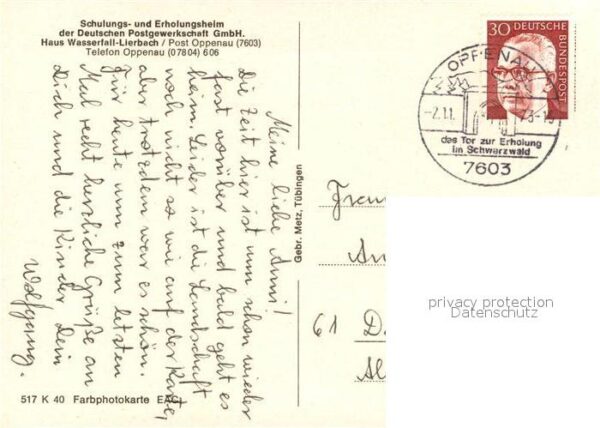 Schulungs- und Erholungsheim
der Deutschen Postgewerkschaft GmbH.
Haus Wasserfall-Lierbach / Post Oppenau (7603)
Telefon Oppenau (07804) 606
Meine liebe Anni!
Die Zeit hier ist nun schon wieder
fast vorüber und bald geht es
heim. Leider ist die Landschaft
noch nicht so wie auf der Karte,
aber trotzdem war es schön.
Für heute nun zum letzten
Mal recht herzliche Grüße an
Dich und die Kinder Dein
Wolfgang.
517 K 40 Farbphotokarte
Gebr. Metz, Tübingen
30 DEUTSCHE
BUNDESPOST
OPPENAU
-2.11.
das Tor zur Erholung
im Schwarzwald
7603
61 D
Al
privacy protection
Datenschutz